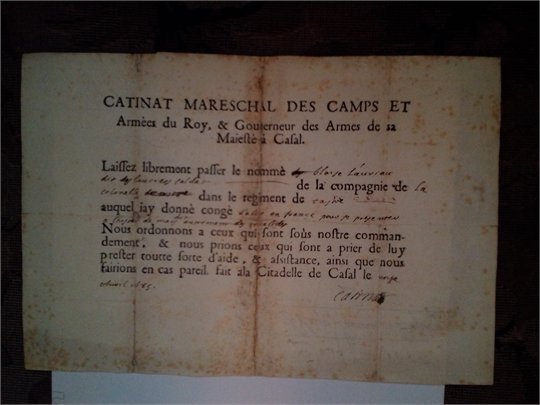 CATINAT MARESCHAL DES CAMPS ET
Armèes du Roy, & Gouuerneur des Armes de sa
Maiestè à Casal.
Laissez librement passer le nommè
de la compagnie de la
colonelle dans le regiment de
auquel iay donnè congè en france pour
Nous ordonnons a ceux qui sont soûs nostre comman-
dement, & nous prions ceux qui sont a prier de luy
prester toutte sorte d'aide, & assistance, ainsi que nous
fairions en cas pareil. fait ala Citadelle de Casal le
Catinat